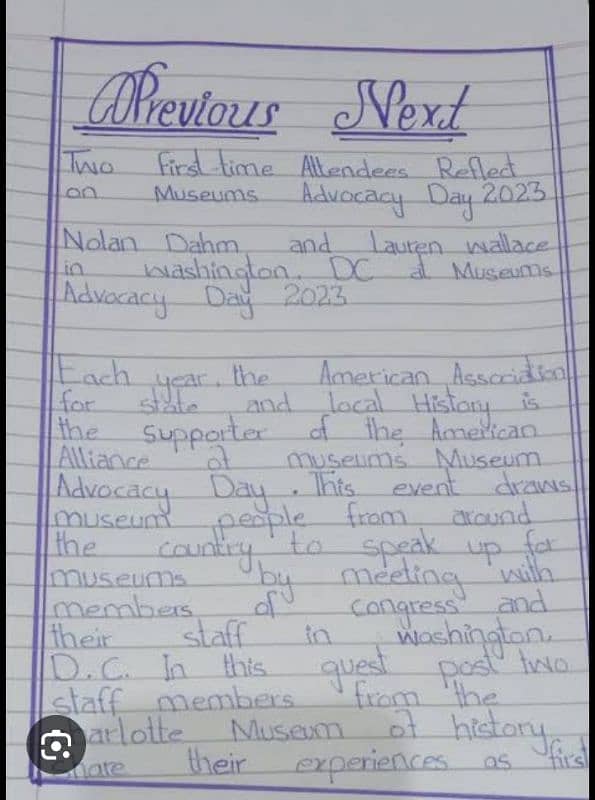 Previous Next
Two first-time Attendees Reflect
on Museums Advocacy Day 2023
Nolan Dahm and Lauren wallace
in washington, DC at Museums
Advocacy Day 2023
Each year, the American Association
for state and local History is
the supporter of the American
Alliance of museums Museum
Advocacy Day. This event draws
museum people from around
the country to speak up for
museums by meeting with
members of congress and
their staff in washington,
D.C. In this guest post two
staff members from the
arlotte Museum of history
share their experiences as first